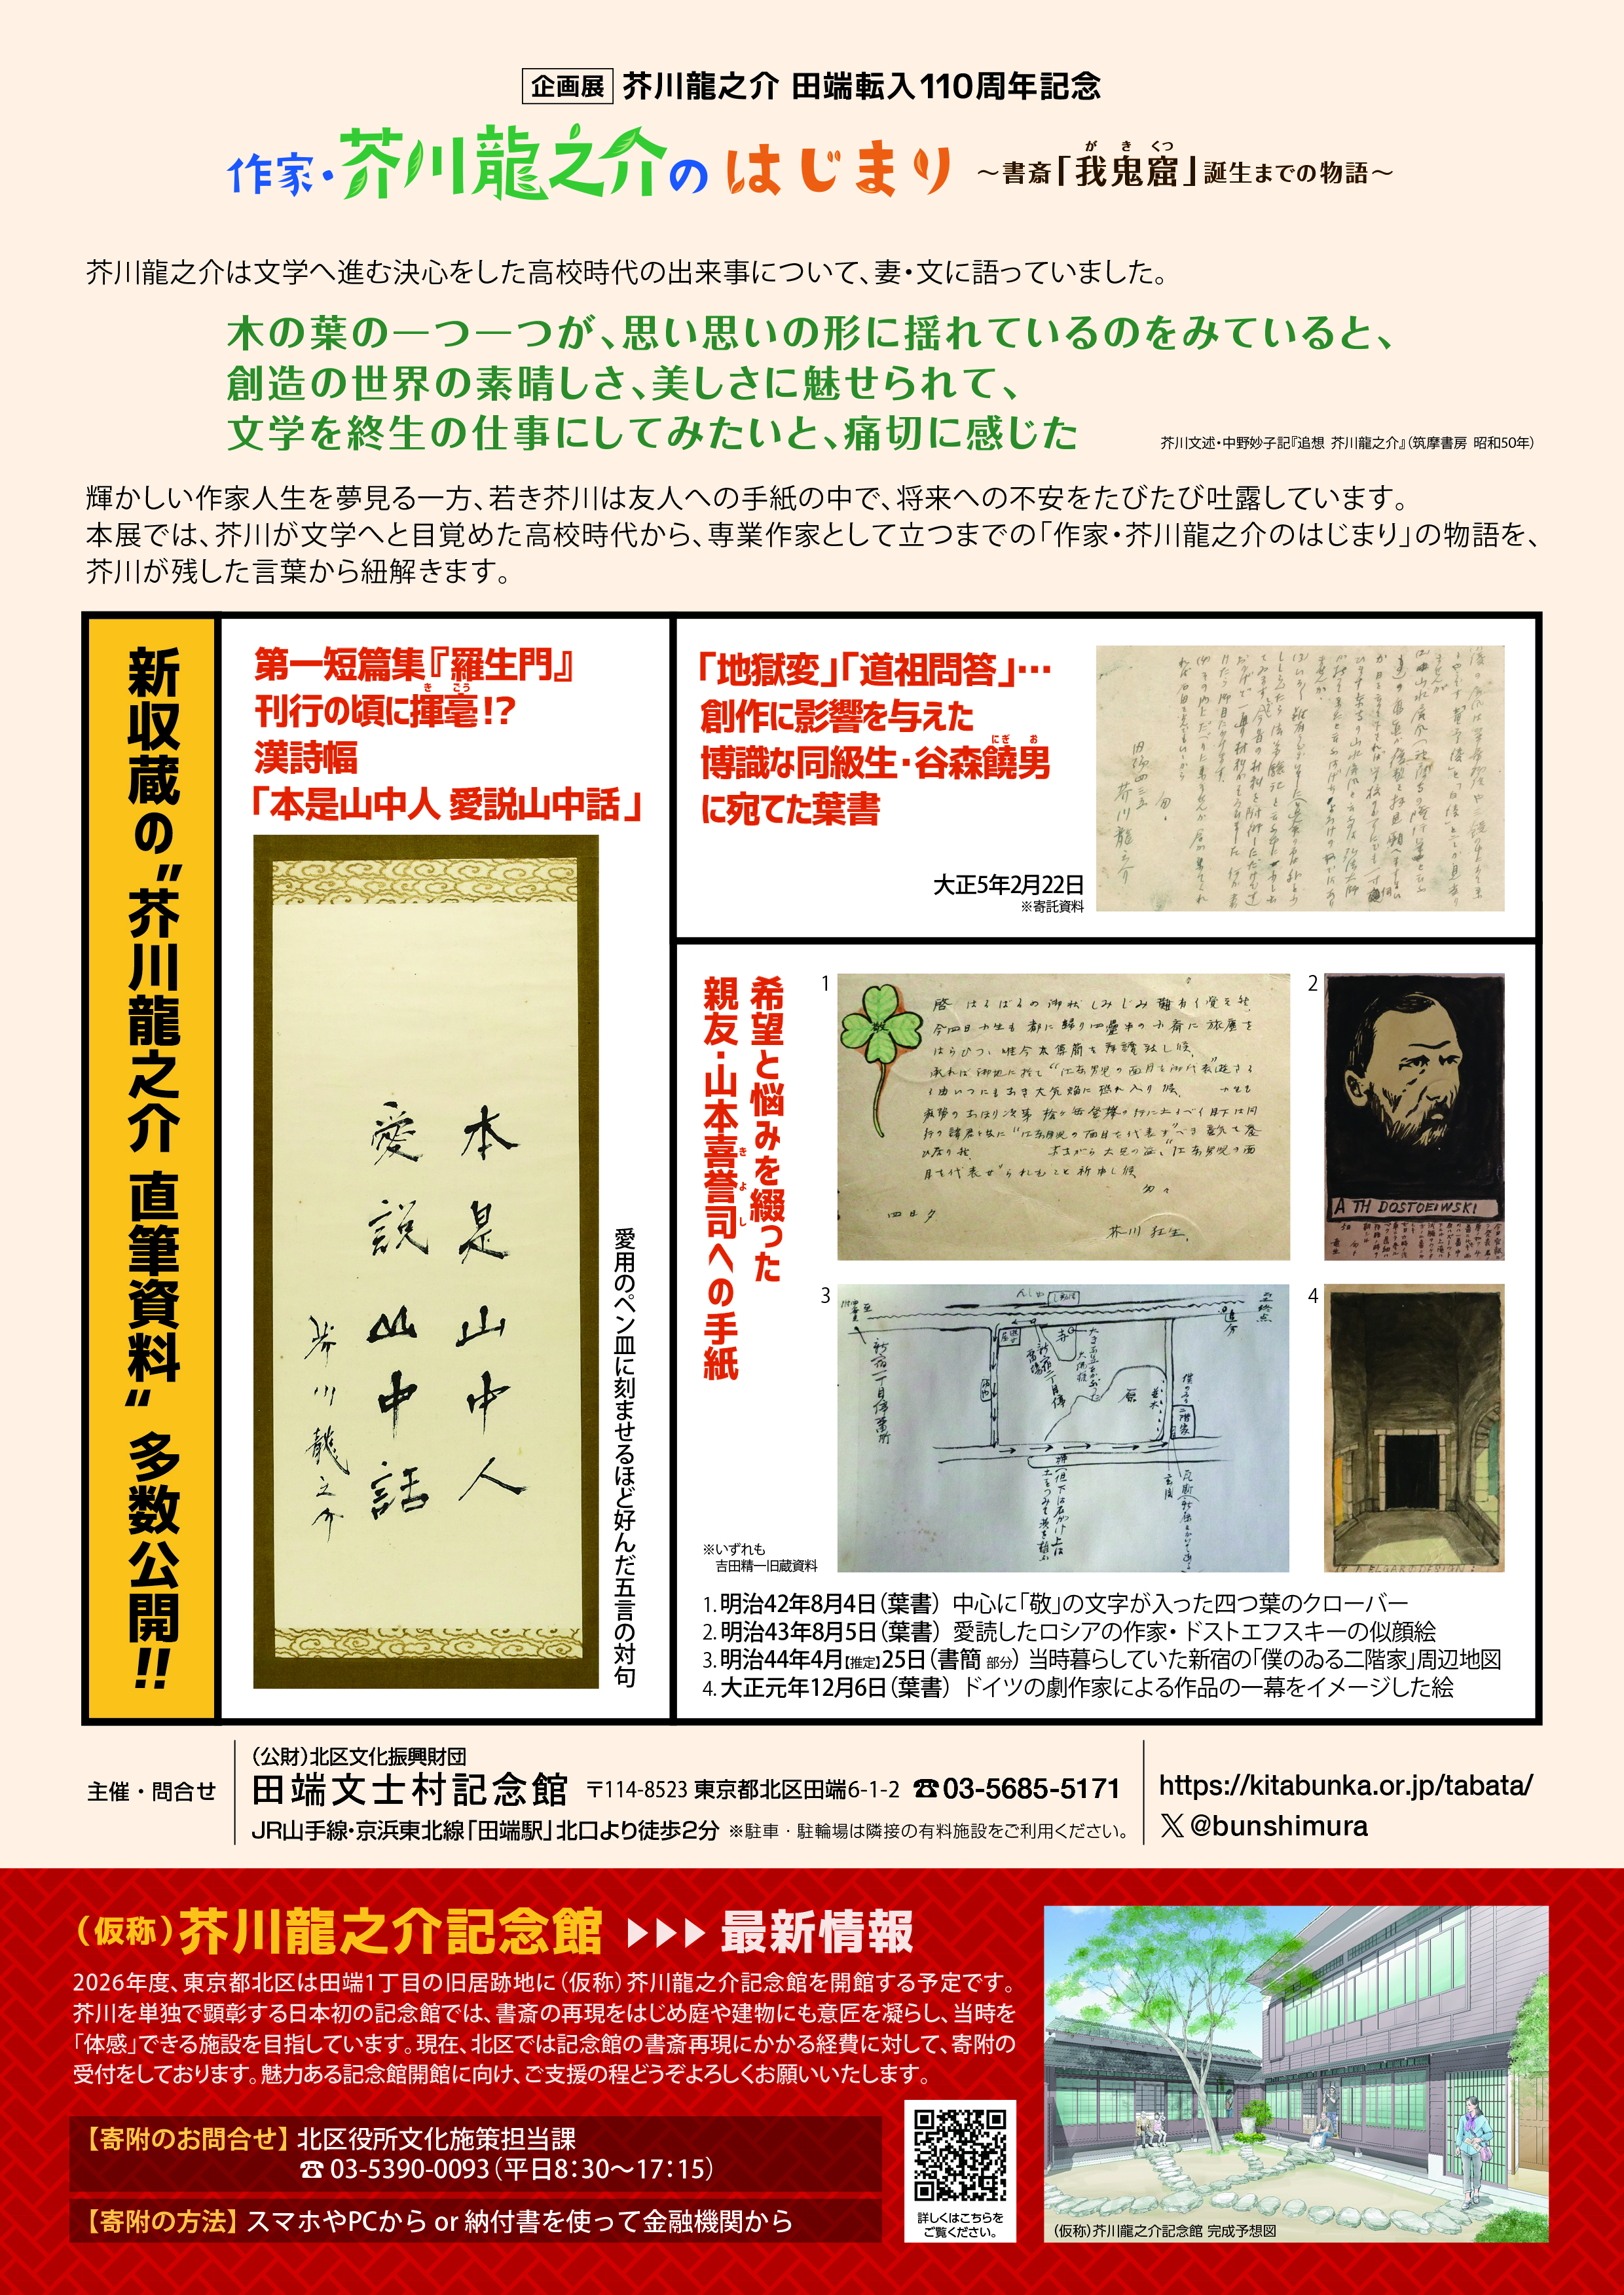 企画展 芥川龍之介 田端転入110周年記念
作家・芥川龍之介のはじまり ～書斎「我鬼窟」誕生までの物語～
が き くつ
芥川龍之介は文学へ進む決心をした高校時代の出来事について、妻・文に語っていました。
木の葉の一つ一つが、思い思いの形に揺れているのをみていると、
創造の世界の素晴しさ、美しさに魅せられて、
文学を終生の仕事にしてみたいと、痛切に感じた
芥川文述・中野妙子記『追想 芥川龍之介』（筑摩書房 昭和50年）
輝かしい作家人生を夢見る一方、若き芥川は友人への手紙の中で、将来への不安をたびたび吐露しています。
本展では、芥川が文学へと目覚めた高校時代から、専業作家として立つまでの「作家・芥川龍之介のはじまり」の物語を、
芥川が残した言葉から紐解きます。
新収蔵の〝芥川龍之介 直筆資料〟多数公開!!
第一短篇集『羅生門』
刊行の頃に揮毫!?
き ごう
漢詩幅
「本是山中人 愛説山中話」
本是山中人
愛説山中話
芥川龍之介
愛用のペン皿に刻ませるほど好んだ五言の対句
「地獄変」「道祖問答」…
創作に影響を与えた
博識な同級生・谷森饒男
にぎ お
に宛てた葉書
大正5年2月22日
※寄託資料
田端四三五
芥川龍之介
希望と悩みを綴った
親友・山本喜誉司への手紙
き よ し
1
敬
四日夕
芥川狂生
2
A TH DOSTOEIWSKI
3
4
※いずれも
吉田精一旧蔵資料
1. 明治42年8月4日（葉書） 中心に「敬」の文字が入った四つ葉のクローバー
2. 明治43年8月5日（葉書） 愛読したロシアの作家・ドストエフスキーの似顔絵
3. 明治44年4月【推定】25日（書簡 部分） 当時暮らしていた新宿の「僕のゐる二階家」周辺地図
4. 大正元年12月6日（葉書） ドイツの劇作家による作品の一幕をイメージした絵
主催・問合せ
（公財）北区文化振興財団
田端文士村記念館 〒114-8523 東京都北区田端6-1-2 ☎03-5685-5171
JR山手線・京浜東北線「田端駅」北口より徒歩2分 ※駐車・駐輪場は隣接の有料施設をご利用ください。
https://kitabunka.or.jp/tabata/
𝕏 @bunshimura
（仮称）芥川龍之介記念館 ▶▶▶ 最新情報
2026年度、東京都北区は田端1丁目の旧居跡地に（仮称）芥川龍之介記念館を開館する予定です。
芥川を単独で顕彰する日本初の記念館では、書斎の再現をはじめ庭や建物にも意匠を凝らし、当時を
「体感」できる施設を目指しています。現在、北区では記念館の書斎再現にかかる経費に対して、寄附の
受付をしております。魅力ある記念館開館に向け、ご支援の程どうぞよろしくお願いいたします。
【寄附のお問合せ】北区役所文化施策担当課
☎ 03-5390-0093（平日8：30～17：15）
【寄附の方法】スマホやPCから or 納付書を使って金融機関から
詳しくはこちらを
ご覧ください。
（仮称）芥川龍之介記念館 完成予想図